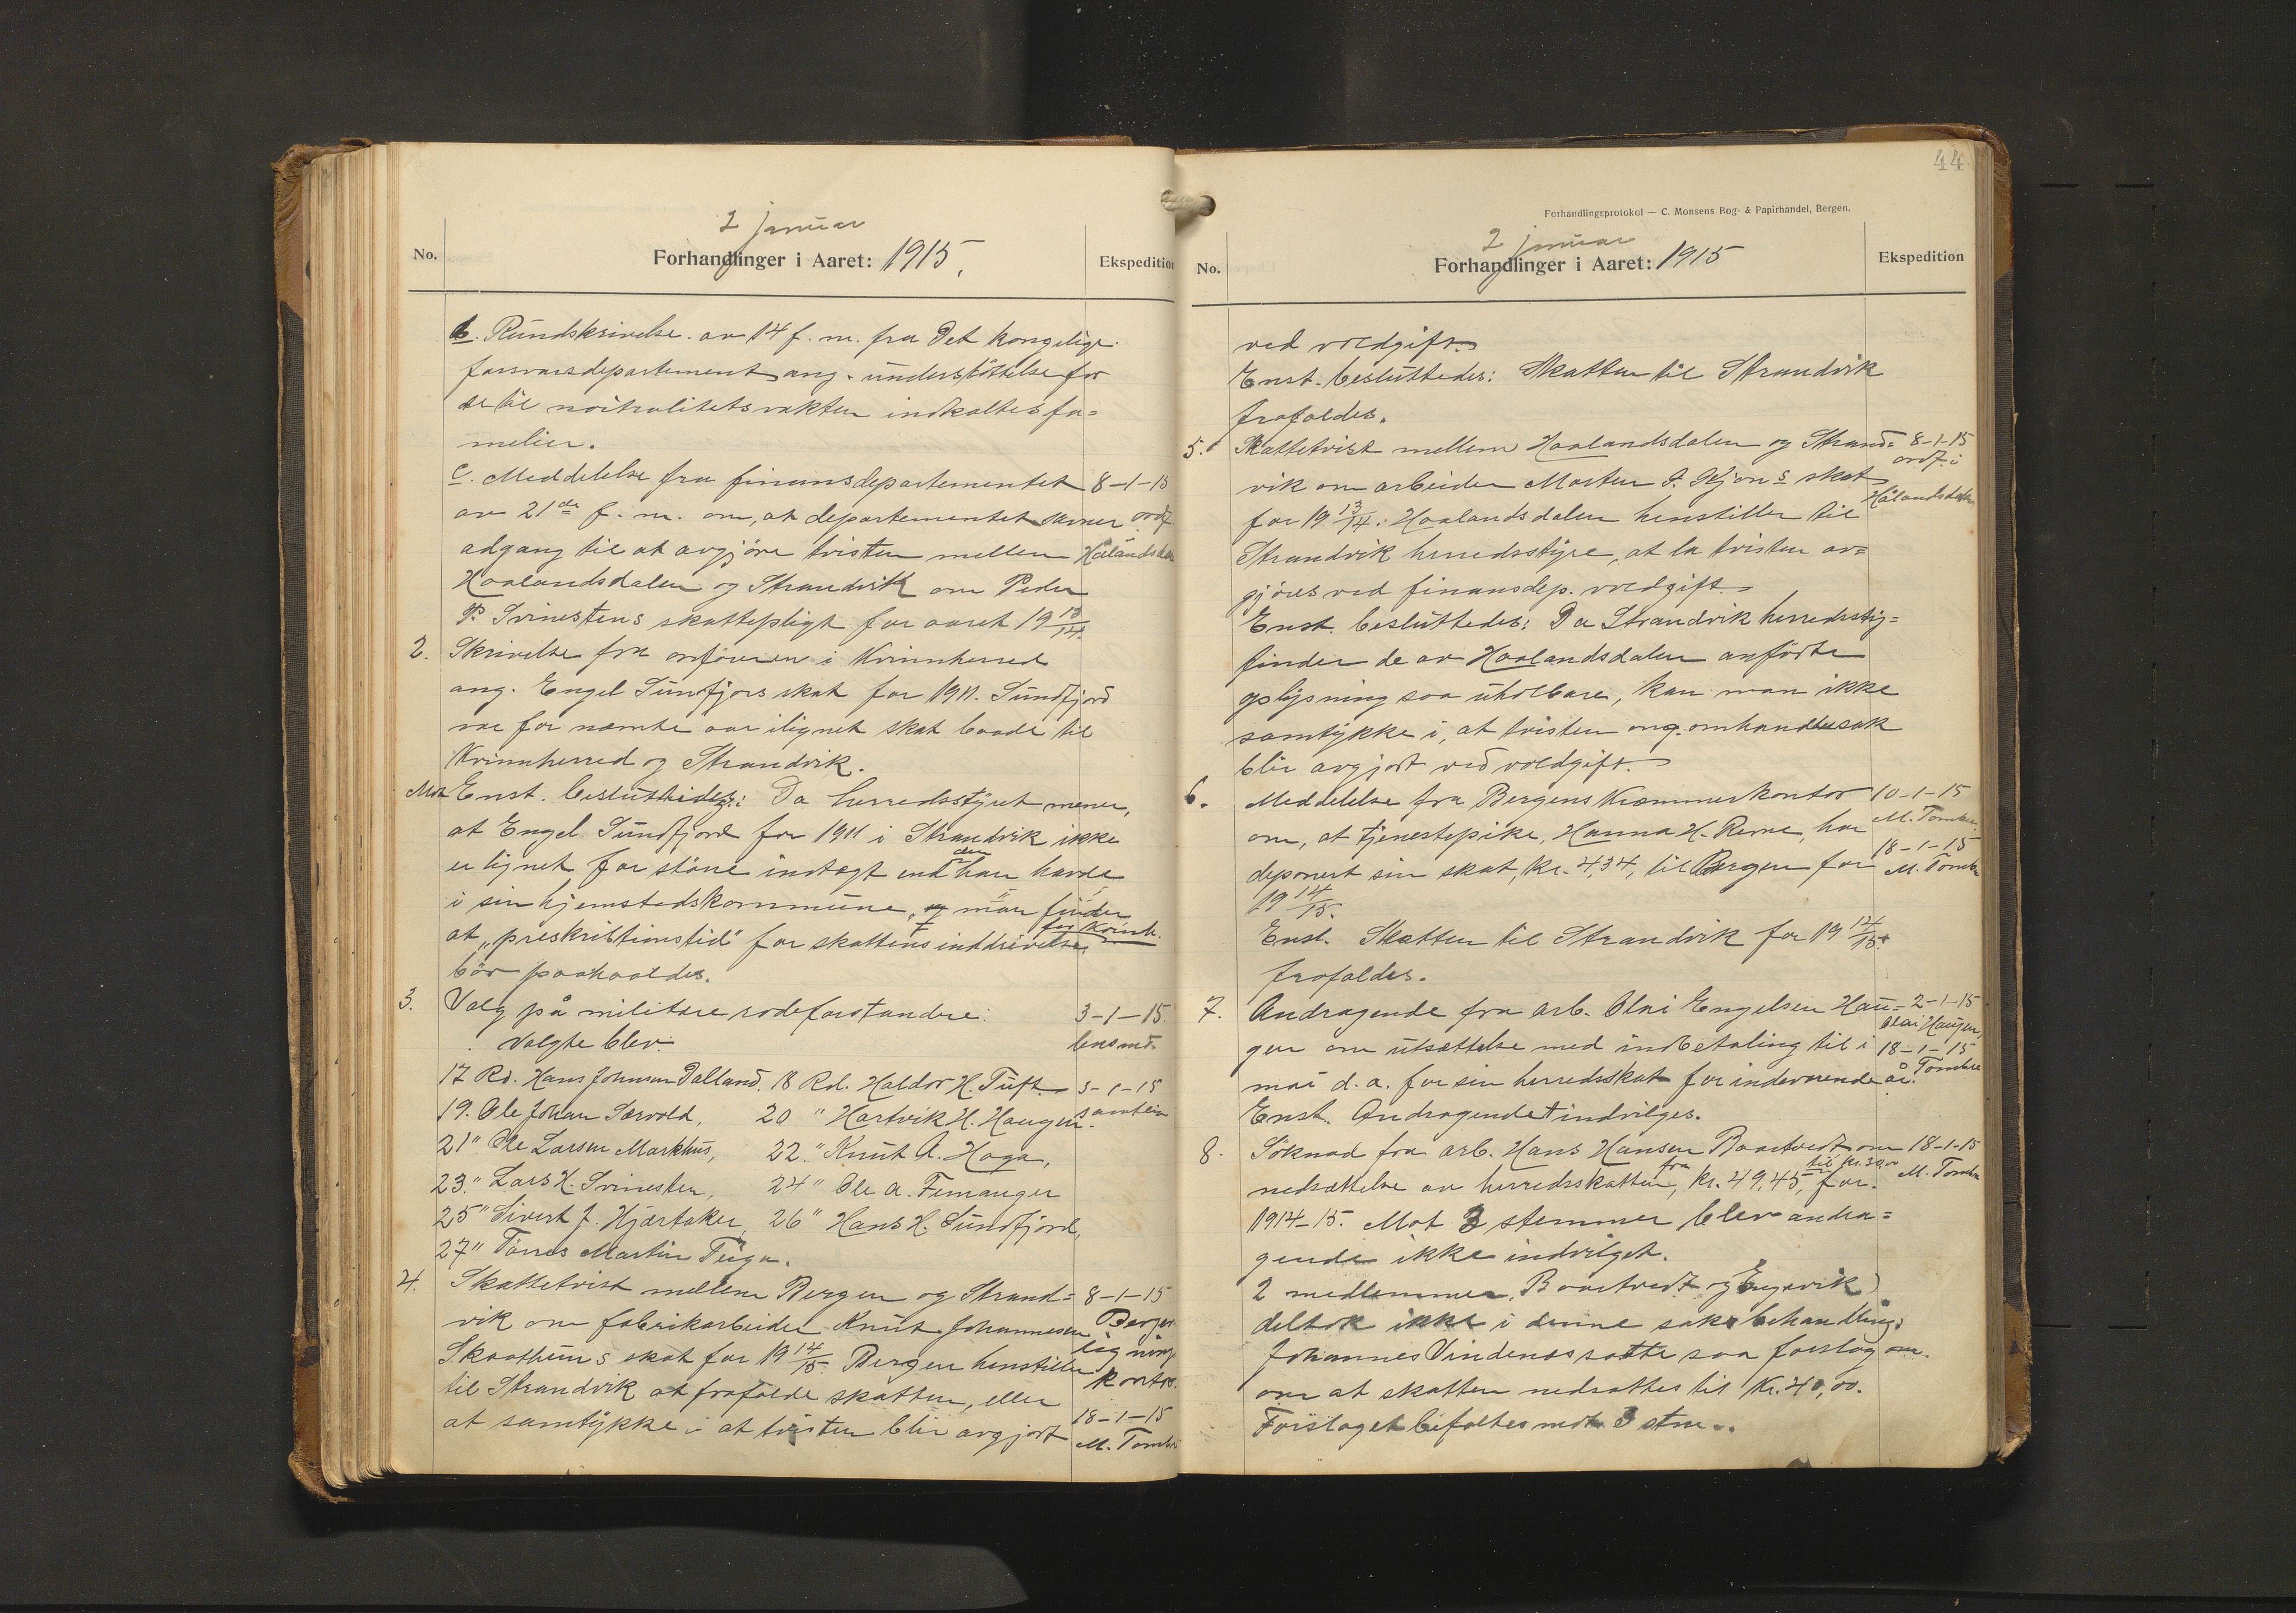 2 januar
No.
Forhandlinger i Aaret: 1915.
Ekspedition
b. Rundskrivelse av 14 f. m. fra Det kongelige
forsvarsdepartement ang. understöttelse for
de til nöitralitetsvakten indkaltes fa=
melier.
c. Meddelelse fra finansdepartementet
8-1-15
av 21de f. m. om, at departementet savner
ordf
adgang til at avgjöre tvisten mellem
Hålandsdalen
Haalandsdalen og Strandvik om Peder
P. Svinestens skattepligt for aaret 19 13/14.
2. Skrivelse fra ordföreren i Kvinnherred
ang. Engel Sundfjors skat for 1911. Sundfjord
var for nævnte aar ilignet skat baade til
Kvinnherred og Strandvik.
Enst. besluttedes: Da herredsstyret mener,
at Engel Sundfjord for 1911 i Strandvik ikke
er lignet for större indtægt end den han havde
i sin hjemstedskommune, man finder
at "preskribtionstid" for skattens inddrivelse for Kvinh.
bör paakaldes.
3. Valg på militære rodeforstandere:
3-1-15.
Valgte blev:
lensmd.
17 Rd. Hans Johnsen Dalland. 18 Rd. Haldor H. Tuft.
3-1-15
19. Ole Johan Sævold, 20 " Hartvik H. Haugen.
samtlige
21" Ole Larsen Markhus, 22." Knut A. Haga,
23." Lars H. Svinesten, 24" Ole A. Femanger
25" Sivert J. Hjartaker, 26" Hans H. Sundfjord,
27" Tørres Martin Teige.
4. Skattetvist mellem Bergen og Strand=
8-1-15
vik om fabrikarbeider Knut Johannesen
Bergens
Skaathuns skat for 19 14/15. Bergen henstiller
lignings
kontor.
til Strandvik at frafalde skatten, eller
18-1-15
at samtykke i at tvisten blir avgjort
M. Tombre
44.
Forhandlingsprotokol — C. Monsens Bog- & Papirhandel, Bergen.
2 januar
No.
Forhandlinger i Aaret: 1915
Ekspedition
ved voldgift.
Enst. besluttedes: Skatten til Strandvik
frafaldes.
5. Skattetvist mellem Haalandsdalen og Strand=
8-1-15
ordf. i
vik om arbeider Morten J. Kjons skat
Hålandsdalen
for 19 13/14. Haalandsdalen henstiller til
Strandvik herredsstyre, at la tvisten av=
gjöres ved finansdep. voldgift.
Enst. besluttedes: Da Strandvik herredsstyre
finder de av Haalandsdalen anförte
oplysning saa uholbare, kan man ikke
samtykke i, at tvisten ang. omhandlede sak
blir avgjort ved voldgift.
6. Meddelelse fra Bergens Kræmmerkontor
10-1-15
M. Tombre
om, at tjenestepike, Hanna H. Reme, har
18-1-15
deponert sin skat, kr. 4,34, til Bergen for
M. Tombre
19 14/15.
Enst. Skatten til Strandvik for 19 14/15.
frafaldes.
7. Andragende fra arb. Olai Engelsen Hau=
2-1-15
Olai Haugen,
gen om utsættelse med indbetaling til i
18-1-15
mai d. a. for sin herredsskat for indeværende år.
Tombre
Enst. Andragendet indvilges.
8. Söknad fra arb. Hans Hansen Baatvedt om
18-1-15
nedsættelse av herredsskatten, fra kr. 49,45, til kr. 30,00 for
M. Tombre
1914-15. Mot 3 stemmer blev andra=
gende ikke indvilget.
2 medlemmer, Baatvedt og Engevik
deltok ikke i denne saks behandling.
Johannes Vindenes satte saa forslag om.
om at skatten nedsættes til kr. 40,00.
Forslaget bifaltes mot 3 stm.